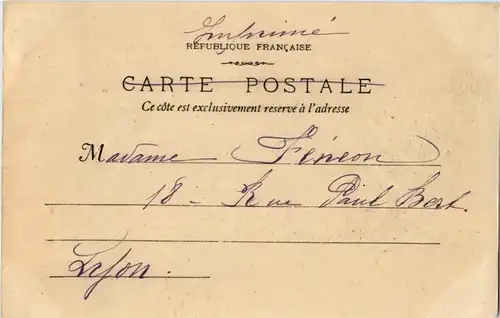 Imprimé
RÉPUBLIQUE FRANÇAISE
CARTE POSTALE
Ce côté est exclusivement réservé à l'adresse
Madame Fénéon
18 - Rue Paul Bert.
Lyon.